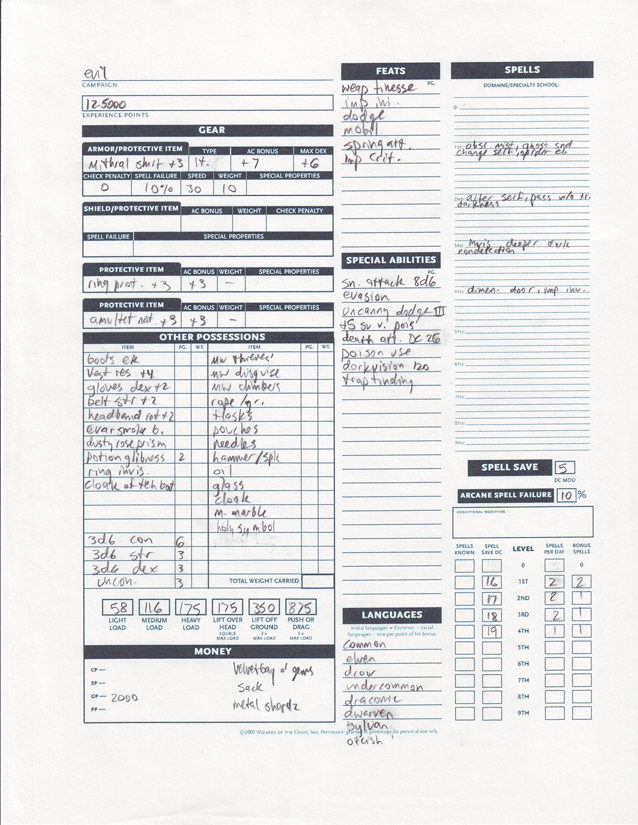 evil
CAMPAIGN
12,5000
EXPERIENCE POINTS
GEAR
ARMOR/PROTECTIVE ITEM TYPE AC BONUS MAX DEX
Mithral shirt +3 lt. +7 +6
CHECK PENALTY SPELL FAILURE SPEED WEIGHT SPECIAL PROPERTIES
0 10% 30 10
SHIELD/PROTECTIVE ITEM AC BONUS WEIGHT CHECK PENALTY
SPELL FAILURE SPECIAL PROPERTIES
PROTECTIVE ITEM AC BONUS WEIGHT SPECIAL PROPERTIES
ring prot. +3 +3 -
PROTECTIVE ITEM AC BONUS WEIGHT SPECIAL PROPERTIES
amulet nat. +3 +3 -
OTHER POSSESSIONS
ITEM PG. WT. ITEM PG. WT.
boots ek mw thieves'
Vest res +4 mw disguise
gloves dex +2 mw climbers
belt str +2 rope/gr.
headband int +2 flasks
eversmoke b. pouches
dusty rose prism needles
potion glibness 2 hammer/spk
ring invis. oil
cloak of the bat glass
cloak
m. marble
holy symbol
3d6 con 6
3d6 str 3
3d6 dex 3
uncon. 3
TOTAL WEIGHT CARRIED
58 116 175 175 350 875
LIGHT LOAD MEDIUM LOAD HEAVY LOAD LIFT OVER HEAD LIFT OFF GROUND PUSH OR DRAG
EQUALS MAX LOAD 2x MAX LOAD 5x MAX LOAD
MONEY
CP —
SP —
GP — 2000
PP —
velvet bag of gems
sack
metal shardz
FEATS
PG.
weap finesse
imp ini.
dodge
mobil.
spring att.
imp crit.
SPECIAL ABILITIES
PG.
sn. attack 8d6
evasion
uncanny dodge III
+5 sv v. pois'
death att. DC 26
poison use
darkvision 120
trapfinding
LANGUAGES
Initial languages = Common + racial
languages + one per point of Int bonus
common
elven
drow
undercommon
draconic
dwarven
sylvan
orcish
SPELLS
DOMAINS/SPECIALTY SCHOOL:
0:
1ST: obsc mist, ghost snd
change self, spider cl
2ND: alter self, pass w/o tr.
darkness
3RD: invis. deeper dark
nondetection
4TH: dimen. door, imp inv.
5TH:
6TH:
7TH:
8TH:
9TH:
SPELL SAVE 5
DC MOD
ARCANE SPELL FAILURE 10 %
CONDITIONAL MODIFIERS
SPELLS KNOWN SPELL SAVE DC LEVEL SPELLS PER DAY BONUS SPELLS
0 0
16 1ST 2 2
17 2ND 2 1
18 3RD 2 1
19 4TH 1 1
5TH
6TH
7TH
8TH
9TH
©2003 WIZARDS OF THE COAST, INC. Permission granted to photocopy for personal use only.